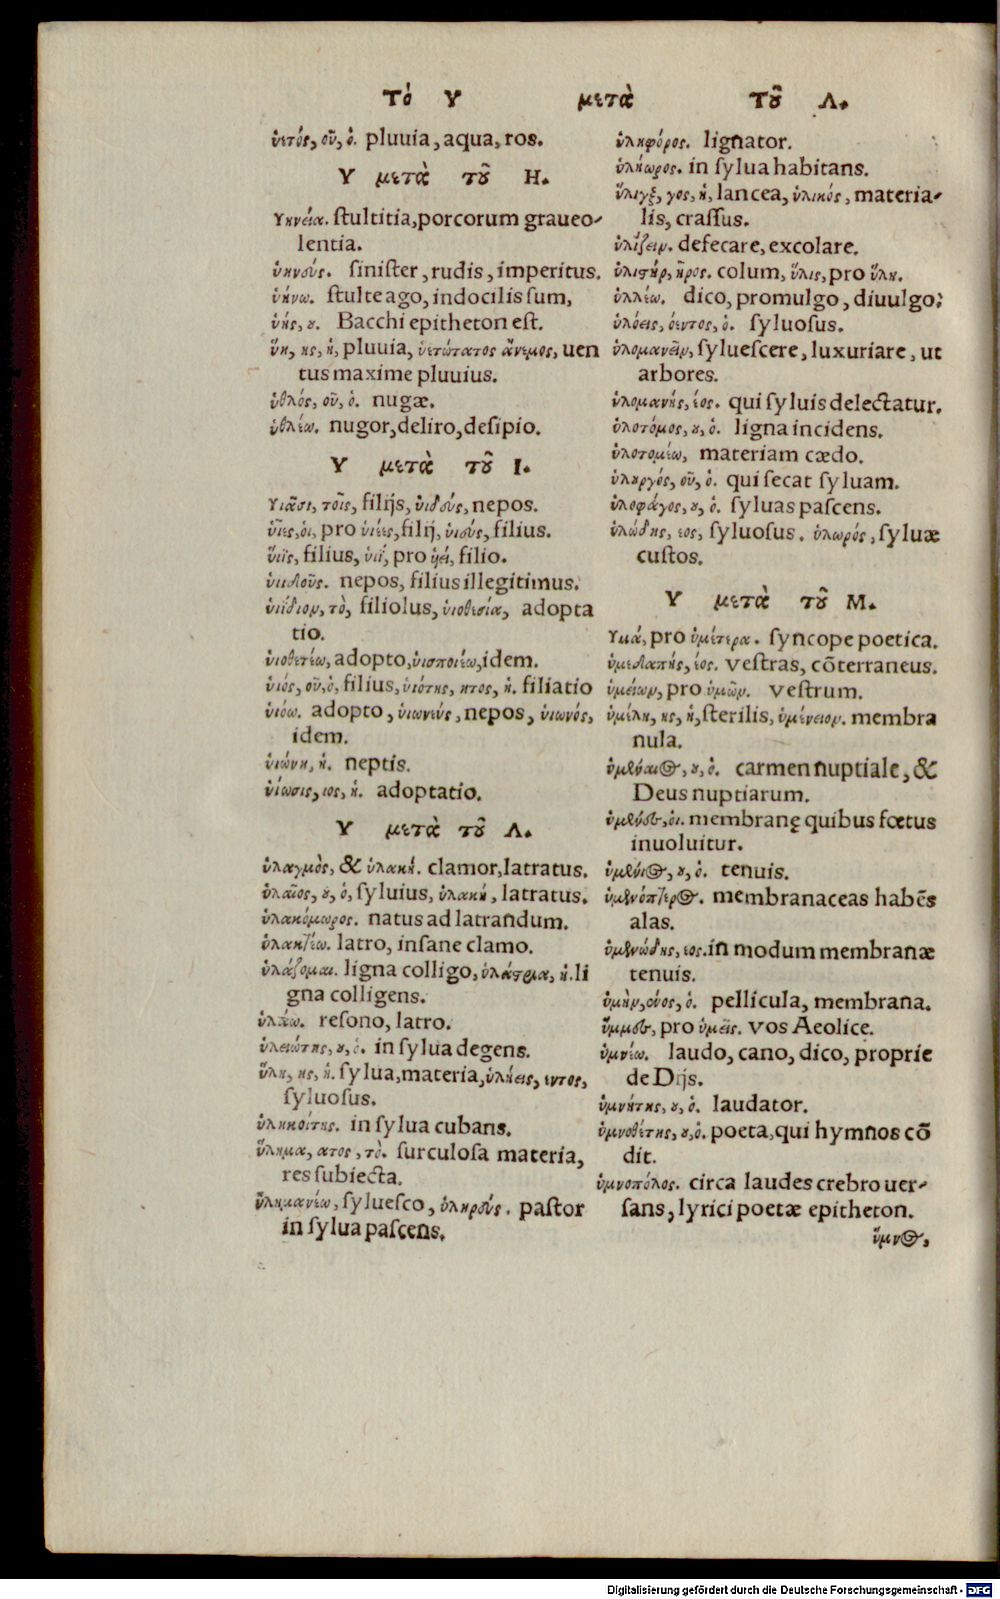 Τὸ Υ μετὰ τοῦ Λ.
ὑετός, οῦ, ὁ. pluuia, aqua, ros.
Υ μετὰ τοῦ Η.
Υηνεία. ſtultitia, porcorum graueo-
lentia.
ὑηνούς. ſiniſter, rudis, imperitus.
ὑήνω. ſtulte ago, indocilis ſum,
ὑής, ου. Bacchi epitheton eſt.
ὕη, ης, ἡ, pluuia, ὑετώτατος ἄνεμος, uen
tus maxime pluuius.
ὑθλός, οῦ, ὁ. nugæ.
ὑθλέω. nugor, deliro, deſipio.
Υ μετὰ τοῦ Ι.
Υιᾶσι, τοῖς, filijs, ὑιδούς, nepos.
ὑῖες, οἱ, pro ὑιέες, filij, ὑιούς, filius.
ὕιϊς, filius, ὑιί, pro ὑιέϊ, filio.
ὑιιδοῦς. nepos, filius illegitimus.
ὑιίδιον, τὸ, filiolus, ὑιοθεσία, adopta
tio.
ὑιοθετέω, adopto, ὑισποιέω, idem.
ὑιός, οῦ, ὁ, filius, ὑιότης, ητος, ἡ. filiatio
ὑιόω. adopto, ὑιωνεύς, nepos, ὑιωνός,
idem.
ὑιώνη, ἡ. neptis.
ὑίωσις, ιος, ἡ. adoptatio.
Υ μετὰ τοῦ Λ.
ὑλαγμὸς, & ὑλακή. clamor, latratus.
ὑλαῖος, ου, ὁ, ſyluius, ὑλακή, latratus.
ὑλακόμωρος. natus ad latrandum.
ὑλακτέω. latro, inſane clamo.
ὑλάζομαι. ligna colligo, ὑλάστρια, ἡ. li
gna colligens.
ὑλάω. reſono, latro.
ὑλειώτης, ου, ὁ. in ſylua degens.
ὕλη, ης, ἡ. ſylua, materia, ὑλήεις, εντος,
ſyluoſus.
ὑληκοίτης. in ſylua cubans.
ὕλημα, ατος, τὸ. ſurculoſa materia,
res ſubiecta.
ὑλημανέω, ſylueſco, ὑληρούς. paſtor
in ſylua paſcens.
ὑληφόρος. lignator.
ὑλήωρος. in ſylua habitans.
ὕλιγξ, γος, ἡ, lancea, ὑλικός, materia-
lis, craſſus.
ὑλίζειν. defecare, excolare.
ὑλιστήρ, ῆρος. colum, ὕλις, pro ὕλη.
ὑλλέω. dico, promulgo, diuulgo.
ὑλόεις, όεντος, ὁ. ſyluoſus.
ὑλομανεῖν, ſylueſcere, luxuriare, ut
arbores.
ὑλομανής, έος. qui ſyluis delectatur.
ὑλοτόμος, ου, ὁ. ligna incidens.
ὑλοτομέω, materiam cædo.
ὑλουργός, οῦ, ὁ. qui ſecat ſyluam.
ὑλοφάγος, ου, ὁ. ſyluas paſcens.
ὑλώδης, εος, ſyluoſus. ὑλωρός, ſyluæ
cuſtos.
Υ μετὰ τοῦ Μ.
Υμά, pro ὑμέτερα. ſyncope poetica.
ὑμεδαπής, έος. veſtras, cõterraneus.
ὑμείων, pro ὑμῶν. veſtrum.
ὑμέλη, ης, ἡ, ſterilis, ὑμένειον. membra
nula.
ὑμέναιος, ου, ὁ. carmen nuptiale, &
Deus nuptiarum.
ὑμένες, οἱ. membranę quibus fœtus
inuoluitur.
ὑμένιος, ου, ὁ. tenuis.
ὑμενόπτερος. membranaceas habẽs
alas.
ὑμενώδης, εος. in modum membranæ
tenuis.
ὑμὴν, ένος, ὁ. pellicula, membrana.
ὕμμες, pro ὑμεῖς. vos Aeolice.
ὑμνέω. laudo, cano, dico, proprie
de Dijs.
ὑμνήτης, ου, ὁ. laudator.
ὑμνοθέτης, ου, ὁ. poeta, qui hymnos cõ
dit.
ὑμνοπόλος. circa laudes crebro uer-
ſans, lyrici poetæ epitheton.
ὕμνος,
Digitalisierung gefördert durch die Deutsche Forschungsgemeinschaft - DFG